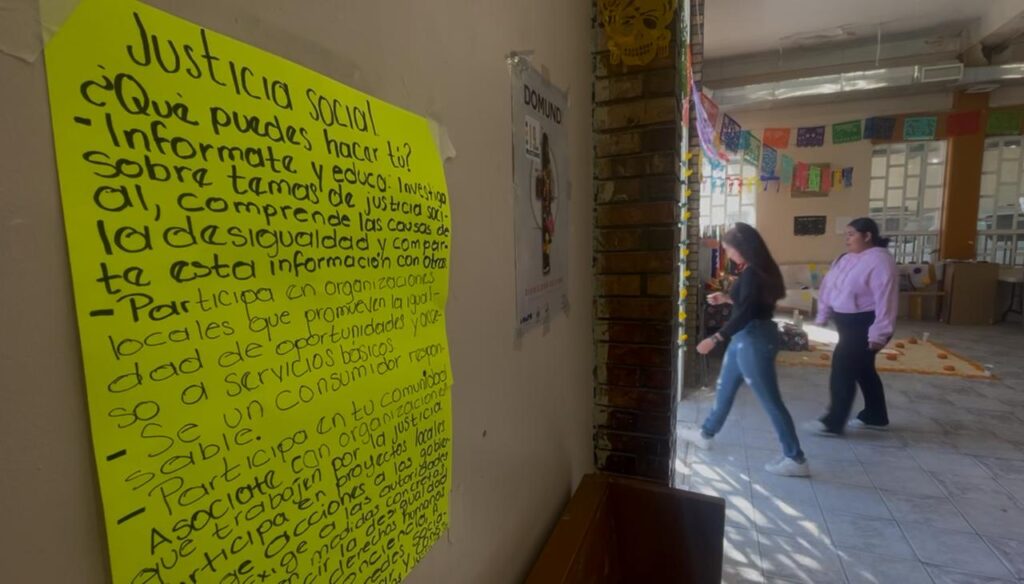 Justicia social
¿Qué puedes hacer tú?
- Informate y educa: Investiga
sobre temas de justicia soci-
al, comprende las causas de
la desigualdad y compar-
te esta información con otros.
- Participa en organizaciones
locales que promueven la igual-
dad de oportunidades y acce-
so a servicios básicos
- Se un consumidor respon-
sable.
- Participa en tu comunidad
Asociate con organizaciones
que trabajen por la justicia
participa en proyectos locales
Exige acciones a los gobier-
autoridades
medidas concretas
desigualdad
derechos humanos
conciencia
redes
DOMUND